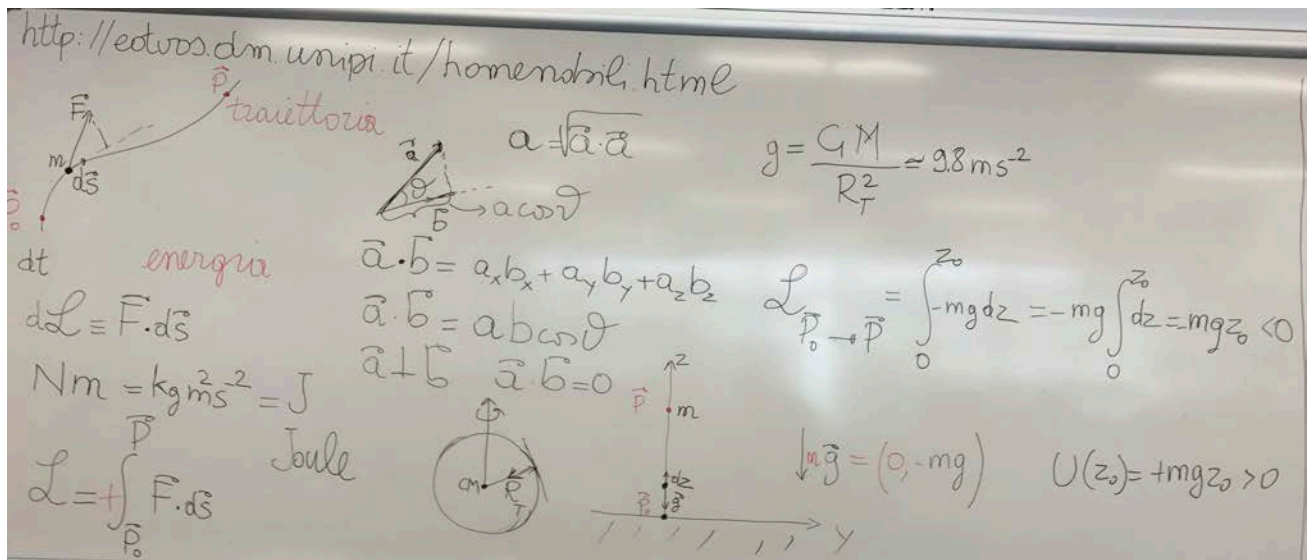 http://eotvos.dm.unipi.it/homenobili.html
P⃗
traiettoria
F⃗
m
ds⃗
P⃗₀
dt
energia
dℒ ≡ F⃗·ds⃗
Nm = kgm²s⁻² = J
Joule
ℒ = +∫_{P⃗₀}^{P⃗} F⃗·ds⃗
a⃗
a = √(a⃗·a⃗)
ϑ
b⃗
→ a cosϑ
a⃗·b⃗ = aₓbₓ + a_y b_y + a_z b_z
a⃗·b⃗ = ab cosϑ
a⃗ ⊥ b⃗ a⃗·b⃗ = 0
CM
R⃗_T
g = GM/R_T² ≃ 9.8 ms⁻²
ℒ_{P⃗₀→P⃗} = ∫₀^{z₀} -mg dz = -mg ∫₀^{z₀} dz = mgz₀ < 0
z
P⃗
m
dz
g⃗
P⃗₀
y
↓ mg⃗ = (0, -mg)
U(z₀) = +mgz₀ > 0